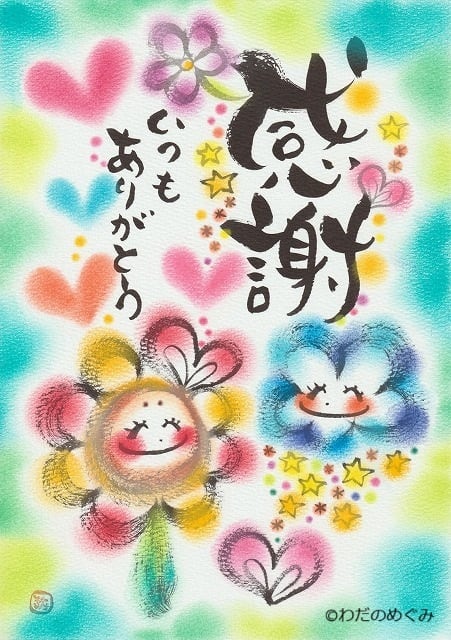 感謝
いつも
ありがとう
©わだのめぐみ